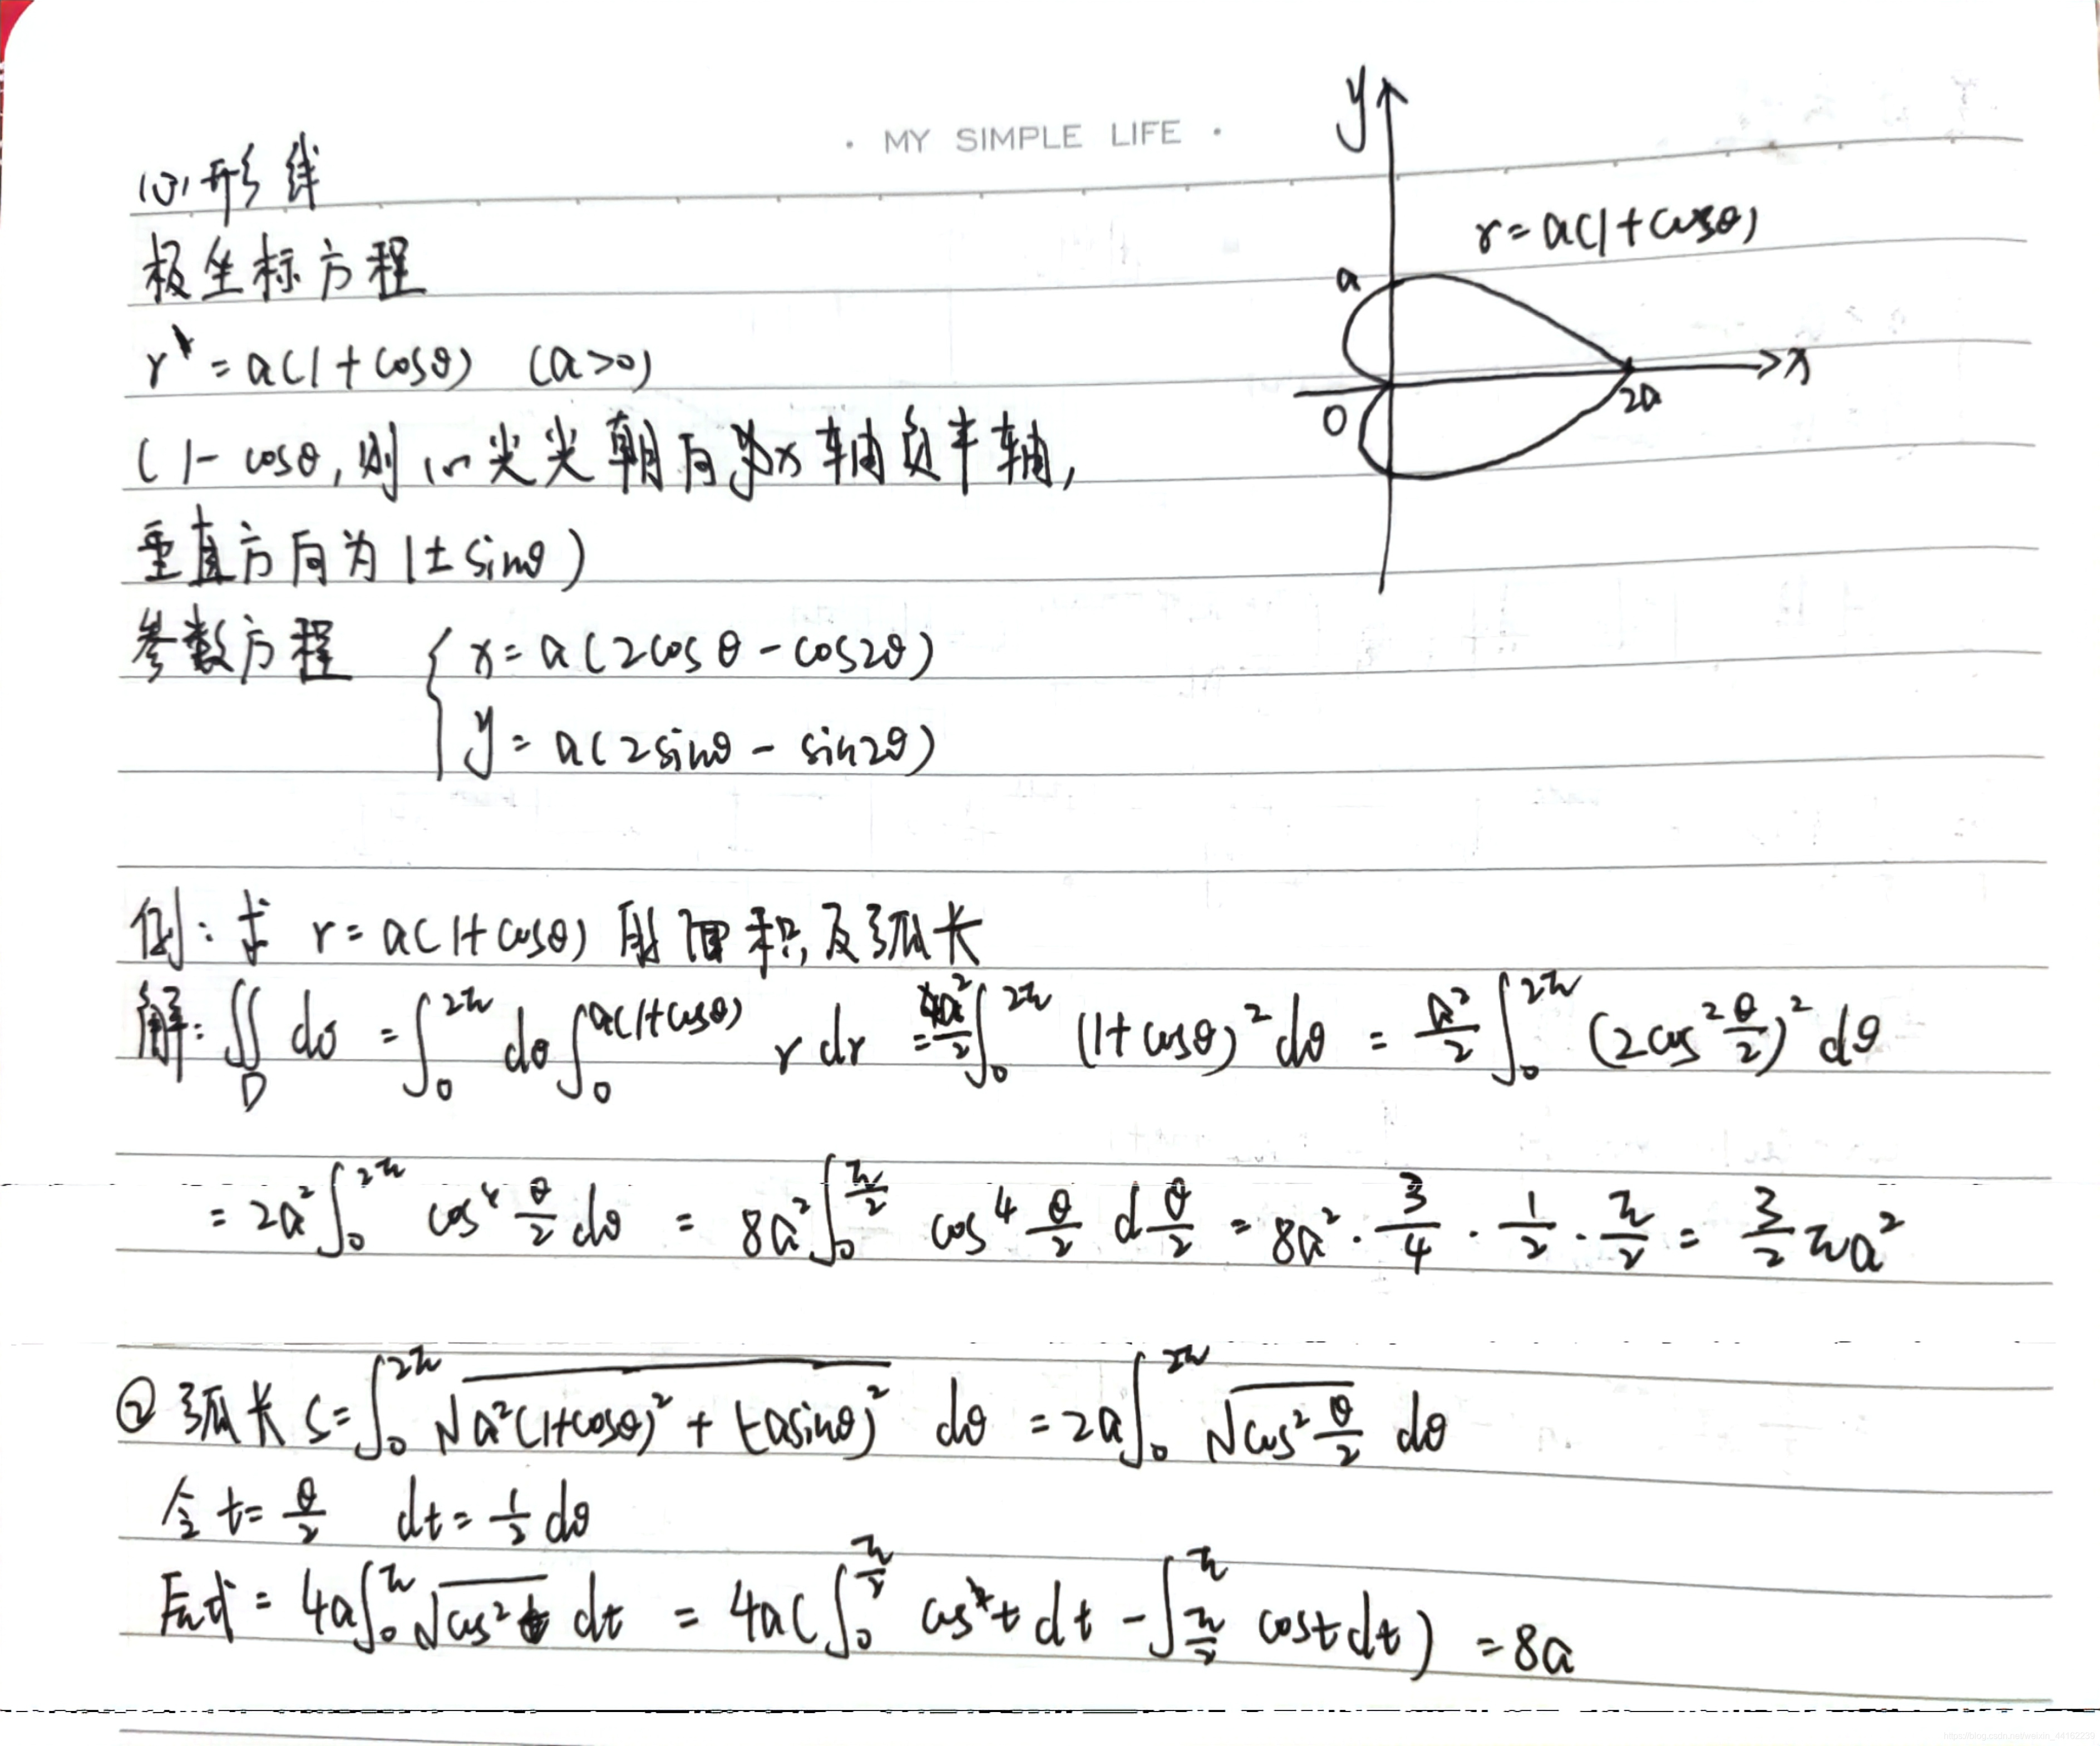 · MY SIMPLE LIFE ·
心形线
极坐标方程
r = a(1+cosθ) (a>0)
(1-cosθ, 则心尖尖朝向x轴负半轴,
垂直方向为1±sinθ)
参数方程 { x = a(2cosθ - cos2θ)
y = a(2sinθ - sin2θ)
y
r = a(1+cosθ)
a
x
O
2a
例: 求 r = a(1+cosθ) 的面积及弧长
解: ∬_D dσ = ∫₀^{2π} dθ ∫₀^{a(1+cosθ)} r dr = a²/2 ∫₀^{2π} (1+cosθ)² dθ = a²/2 ∫₀^{2π} (2cos² θ/2)² dθ
= 2a² ∫₀^{2π} cos⁴ θ/2 dθ = 8a² ∫₀^{π/2} cos⁴ θ/2 d θ/2 = 8a² · 3/4 · 1/2 · π/2 = 3/2 πa²
② 弧长 S = ∫₀^{2π} √(a²(1+cosθ)² + (-asinθ)²) dθ = 2a ∫₀^{2π} √(cos² θ/2) dθ
令 t = θ/2 dt = 1/2 dθ
原式 = 4a ∫₀^{π} √(cos² t) dt = 4a( ∫₀^{π/2} cos t dt - ∫_{π/2}^{π} cost dt ) = 8a